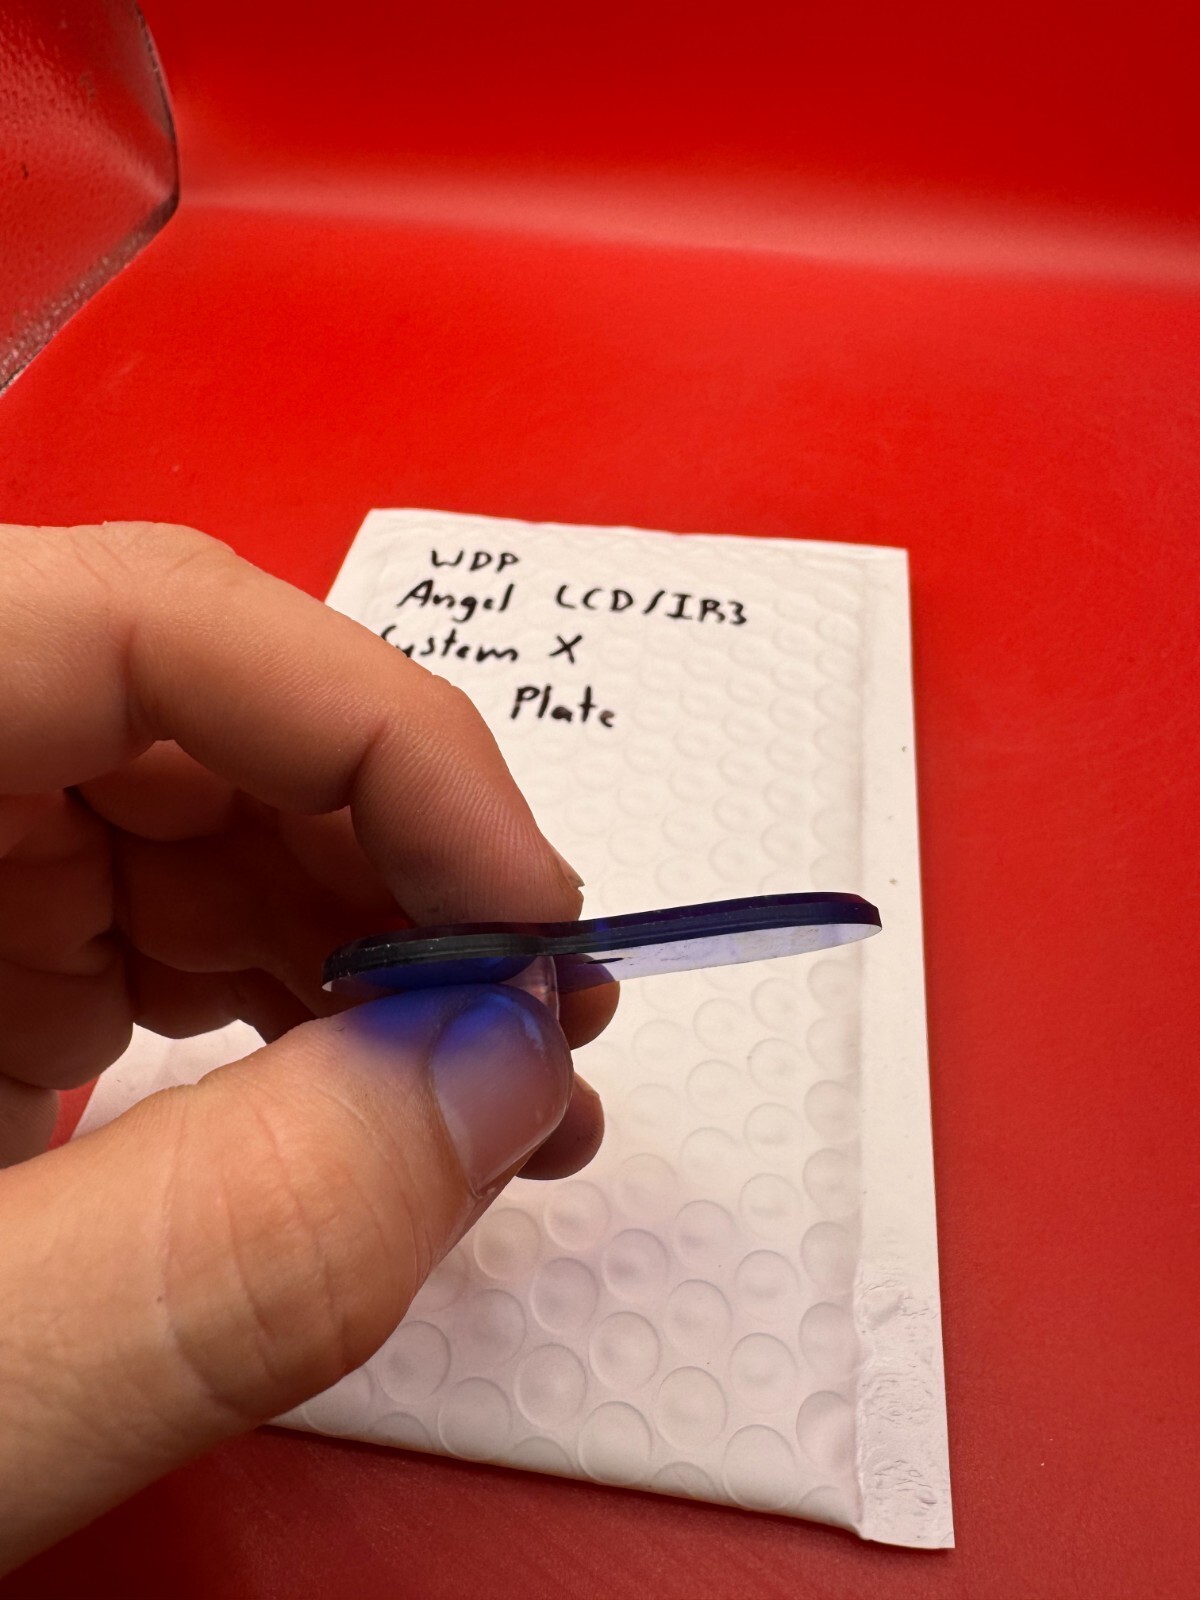 WDP
Angel LCD/IR3
System X
Plate